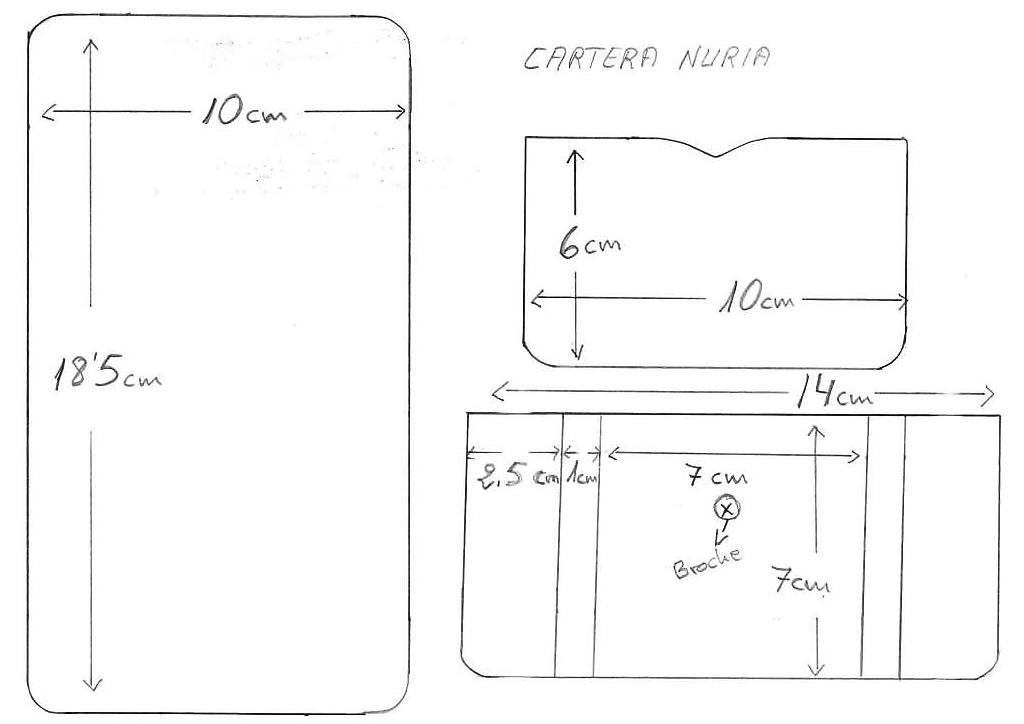 CARTERA NURIA
10cm
18'5cm
6cm
10cm
14cm
2.5 cm
1cm
7 cm
x
Broche
7cm